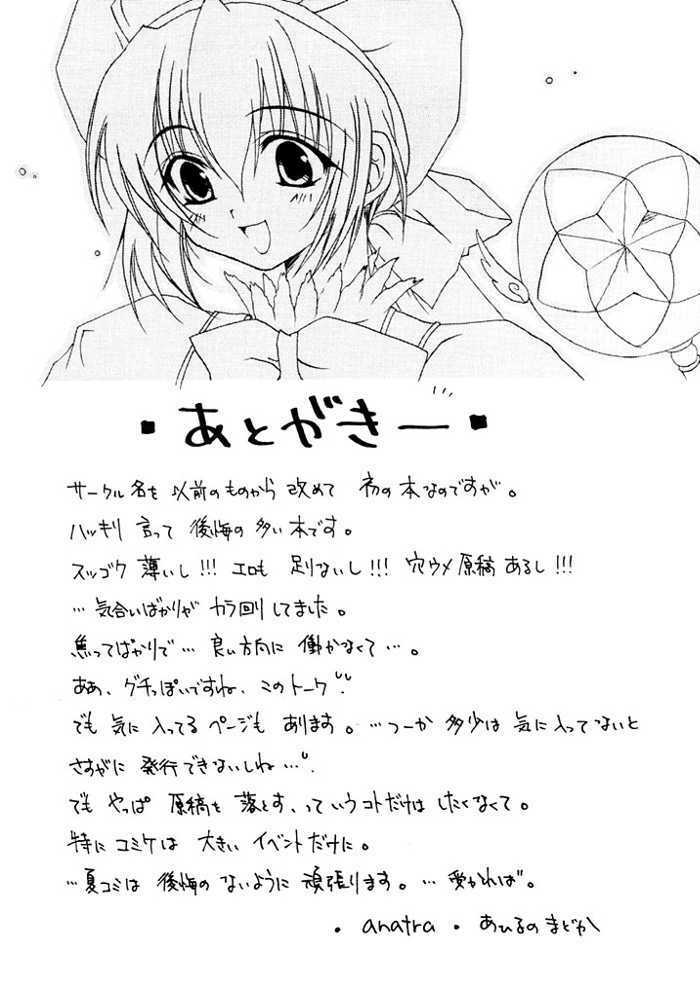 ・あとがきー・
サークル名を 以前のものから 改めて 初の本なのですが。
ハッキリ 言って 後悔の多い本です。
スッゴク 薄いし!!! エロも 足りないし!!! 穴ウメ原稿あるし!!!
…気合いばかりが カラ回りしてました。
焦ってばかりで… 良い方向に 働かなくて…。
ああ、グチっぽいですね、このトーク
でも 気に入ってる ページも あります。…つーか 多少は 気に入ってないと
さすがに 発行できないしね…
でも やっぱ 原稿を 落とす、っていうコトだけは したくなくて。
特に コミケは 大きい イベントだけに。
…夏コミは 後悔の ないように 頑張ります。…受かれば。
・anatra・ あひるのまどか